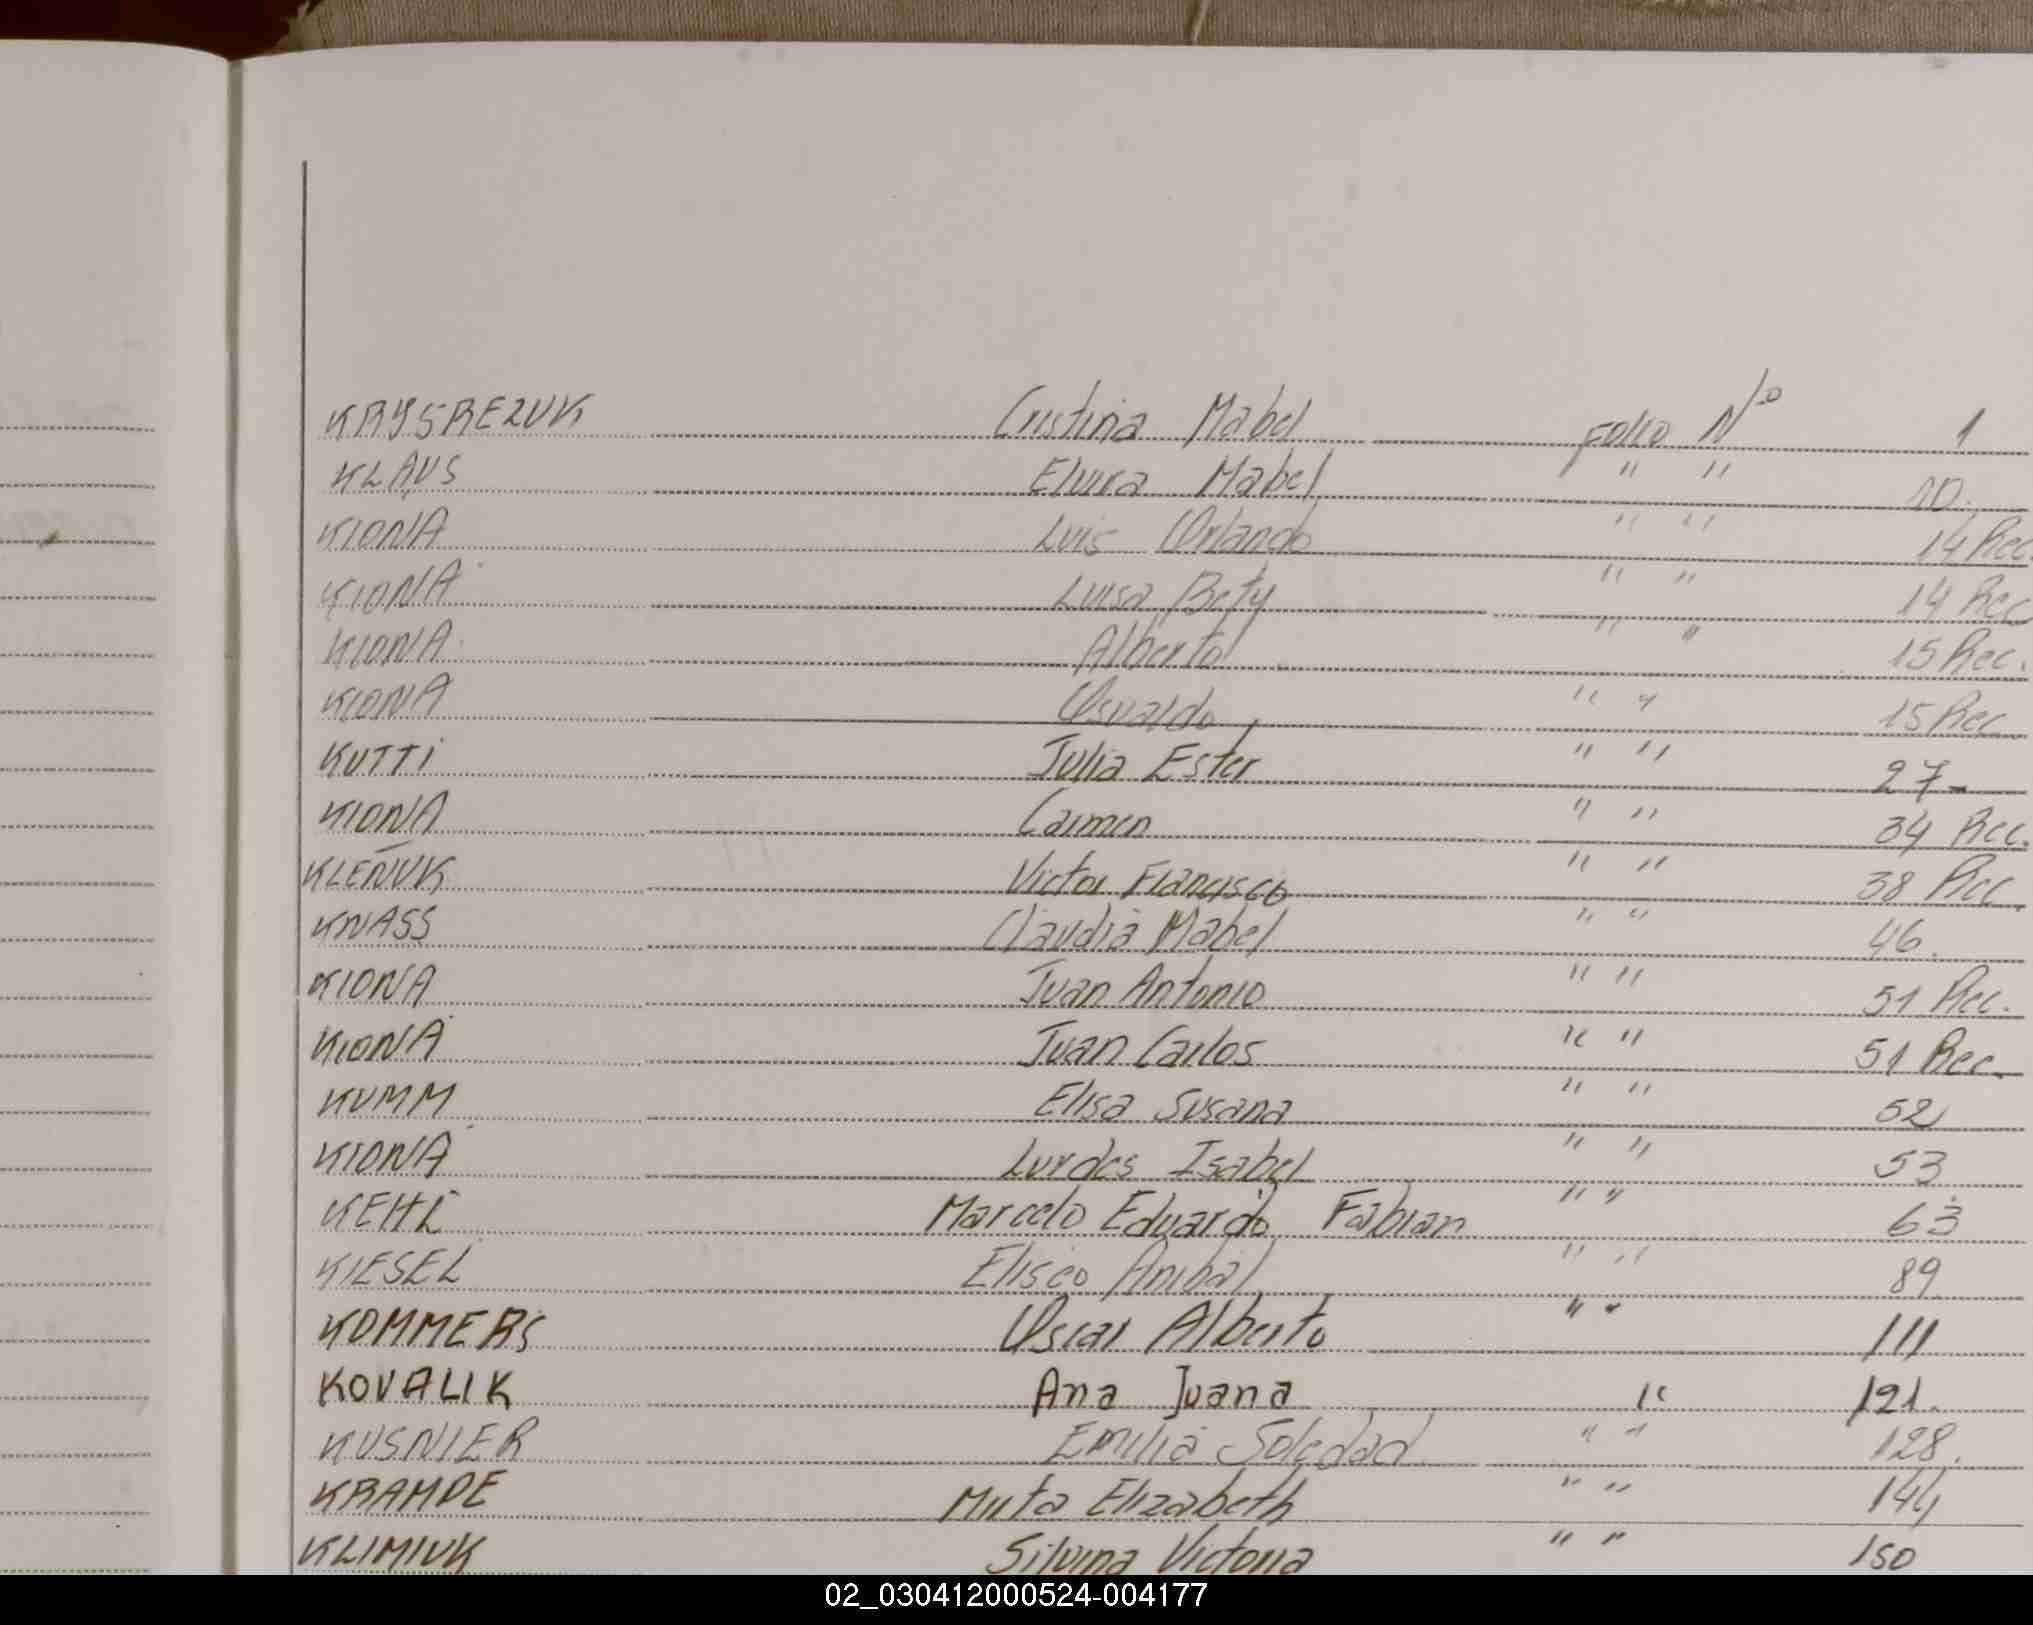 KRYSREZUK Cristina Mabel Folio Nº 1
KLAUS Elvira Mabel " " 10.
KIONA Luis Orlando " " 14 Rec.
KIONA Luisa Bety " " 14 Rec
KIONA Alberto " " 15 Rec.
KIONA Osvaldo " " 15 Rec.
KUTTI Julia Ester " " 27-
KIONA Carmen " " 34 Rec.
KLEÑUK Victor Francisco " " 38 Rec.
KNASS Claudia Mabel " " 46.
KIONA Juan Antonio " " 51 Rec.
KIONA Juan Carlos " " 51 Rec.
KUMM Elisa Susana " " 52
KIONA Lurdes Isabel " " 53.
KEHL Marcelo Eduardo Fabian " " 63
KIESEL Eliseo Anibal " " 89
KOMMERS Oscar Alberto " " 111
KOVALIK Ana Juana " 121.
KUSNIER Emilia Soledad " " 128.
KRAMPE Mirta Elizabeth " " 144
KLIMIUK Silvina Victoria " " 150
02_030412000524-004177